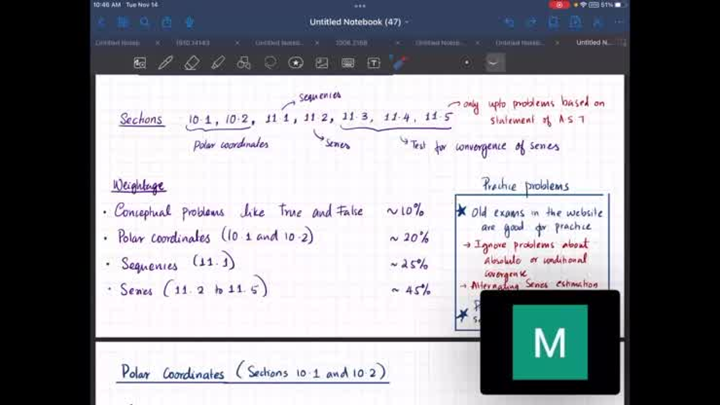 10:46 AM Tue Nov 14
51%
Untitled Notebook (47)
Untitled Noteb
1910.14143
Untitled Notebo
Untitled Noteb
Untitled Notebo
Untitled N
sequencies
Sections 10.1, 10.2, 11.1, 11.2, 11.3, 11.4, 11.5
only upto problems based on
statement of AST
Polar coordinates
Series
Test for convergence of series
Weightage
• Conceptual problems like True and False ~10%
• Polar coordinates (10.1 and 10.2) ~20%
• Sequencies (11.1) ~25%
• Series (11.2 to 11.5) ~45%
Practice problems
★ Old exams in the website
are good for practice
→ Ignore problems about
absolute or conditional
→ Alternating Series estimation
M
Polar Coordinates (Sections 10.1 and 10.2)